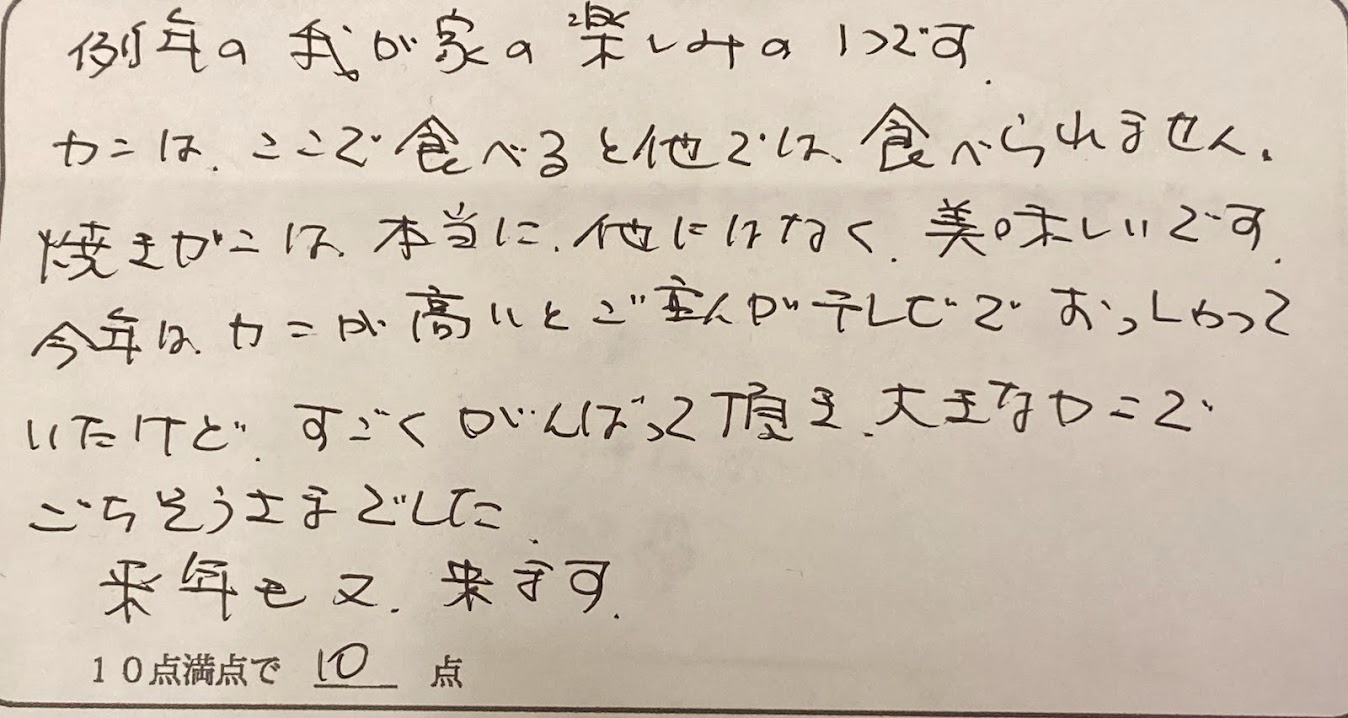 例年の我が家の楽しみの1つです.
カニは、ここで食べると他では、食べられません。
焼きガニは、本当に、他にはなく、美味しいです.
今年は、カニが高いとご主人がテレビでおっしゃって
いたけど、すごくがんばって頂き、大きなカニで
ごちそうさまでした.
来年も又、来ます.
10点満点で 10 点